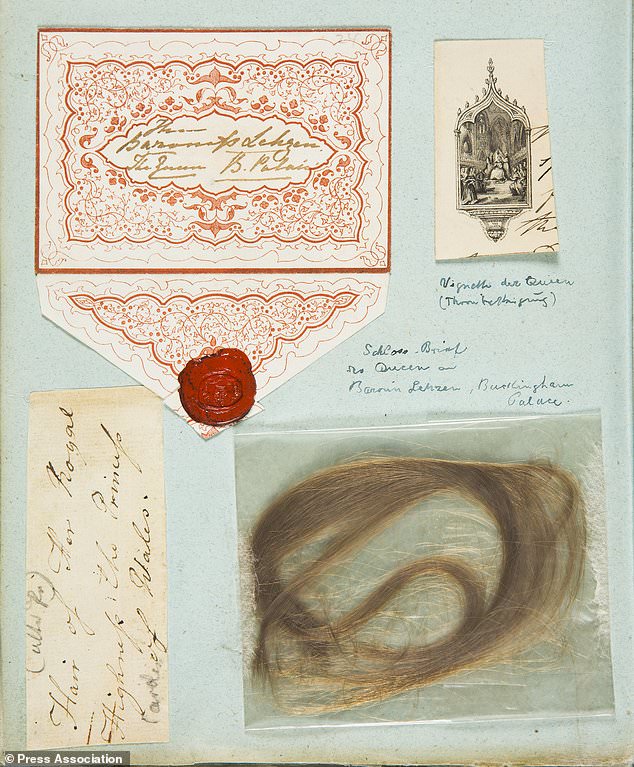 The
Baroness Lehzen
The Queen B. Palace
Vignette der Queen
(Thronbesteigung)
Schloss-Brief
der Queen an
Baronin Lehzen, Buckingham
Palace.
Hair of Her Royal
Highness the Princess
of Wales.
© Press Association